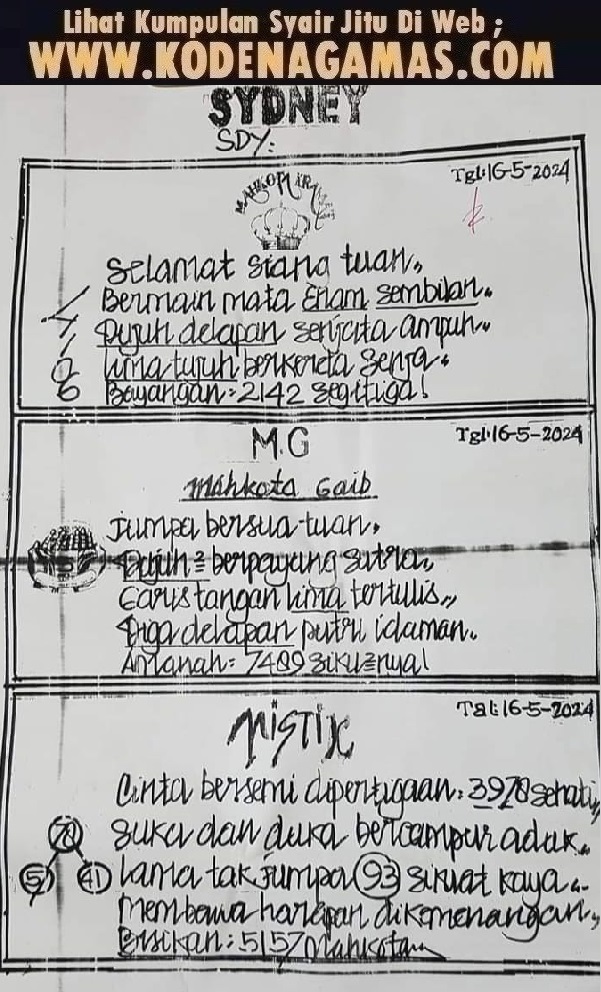 Lihat Kumpulan Syair Jitu Di Web ;
WWW.KODENAGAMAS.COM
SYDNEY
SDY:
Tgl:16-5-2024
Selamat siang tuan,,
Bermain mata Enam sembilan.
Tujuh delapan senjata ampuh.
Lima tujuh berkereta senja.
6 Bayangan: 2142 segitiga!
M.G
Tgl:16-5-2024
Mahkota Gaib
Jumpa bersua tuan,
Tujuh² berpayung sutra,
Garis tangan lima tertulis,,
Tiga delapan putri idaman.
Amanah: 7489 siku²nya!
MISTIK
Tgl:16-5-2024
Cinta bersemi dipertigaan: 3978 sehati,,
78 suka dan duka bercampur aduk.
5 41 Lama tak jumpa 93 sikuat kaya..
Membawa harapan dikemenangan,,
Bisikan: 5157 Mahkota